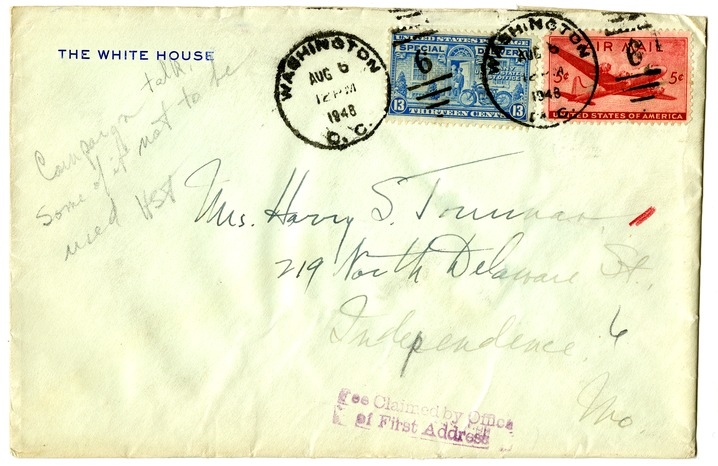 THE WHITE HOUSE
Campaign talk.
Some of it not to be
used HST
WASHINGTON
AUG 6
12 PM
1948
D.C.
UNITED STATES POSTAGE
SPECIAL DELIVERY
13 13
THIRTEEN CENTS
WASHINGTON
AUG 6
1948
D.C.
6
6
AIR MAIL
5¢ 5¢
UNITED STATES OF AMERICA
Mrs. Harry S. Truman
219 North Delaware St.,
Independence, 6
Mo.
Fee Claimed by Office
of First Address